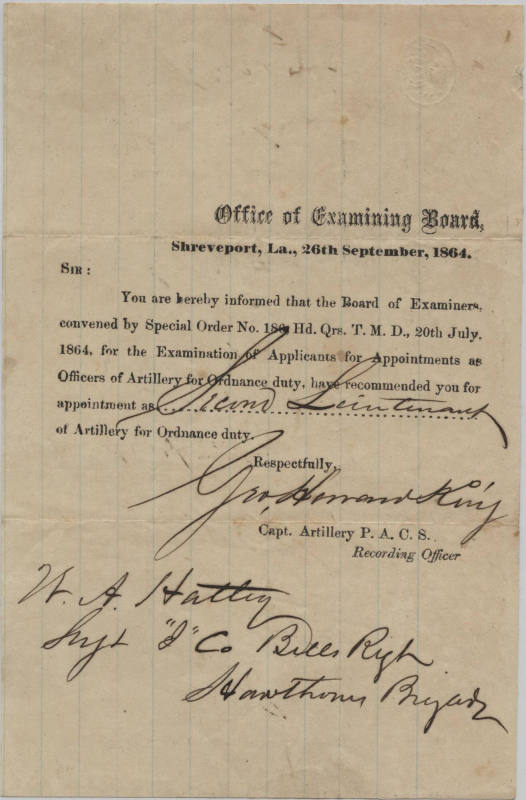 Office of Examining Board,
Shreveport, La., 26th September, 1864.
SIR :
You are hereby informed that the Board of Examiners,
convened by Special Order No. 186 Hd. Qrs. T. M. D., 20th July,
1864, for the Examination of Applicants for Appointments as
Officers of Artillery for Ordnance duty, have recommended you for
appointment as Second Lieutenant
of Artillery for Ordnance duty.
Respectfully,
Geo. Howard King
Capt. Artillery P. A. C. S.
Recording Officer
W. A. Hatley
Sergt "I" Co Bells Regt
Hawthorns Brigade